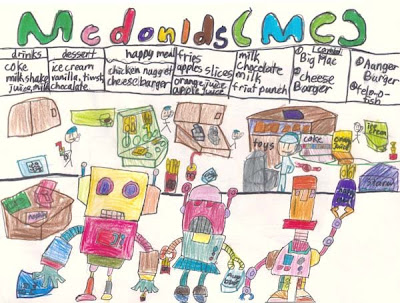 Mcdonlds(MC)
drinks
coke
milkshake
juice, milk
dessert
ice cream
vanilla, twist
chocolate
happy meal
chicken nugget
cheese barger
fries
apples slices
orange juice
apple juice
milk
chocolate
milk
friat punch
Big Mac
cheese
Barger
hanger
Burger
felo-o-
fish
toys
coke